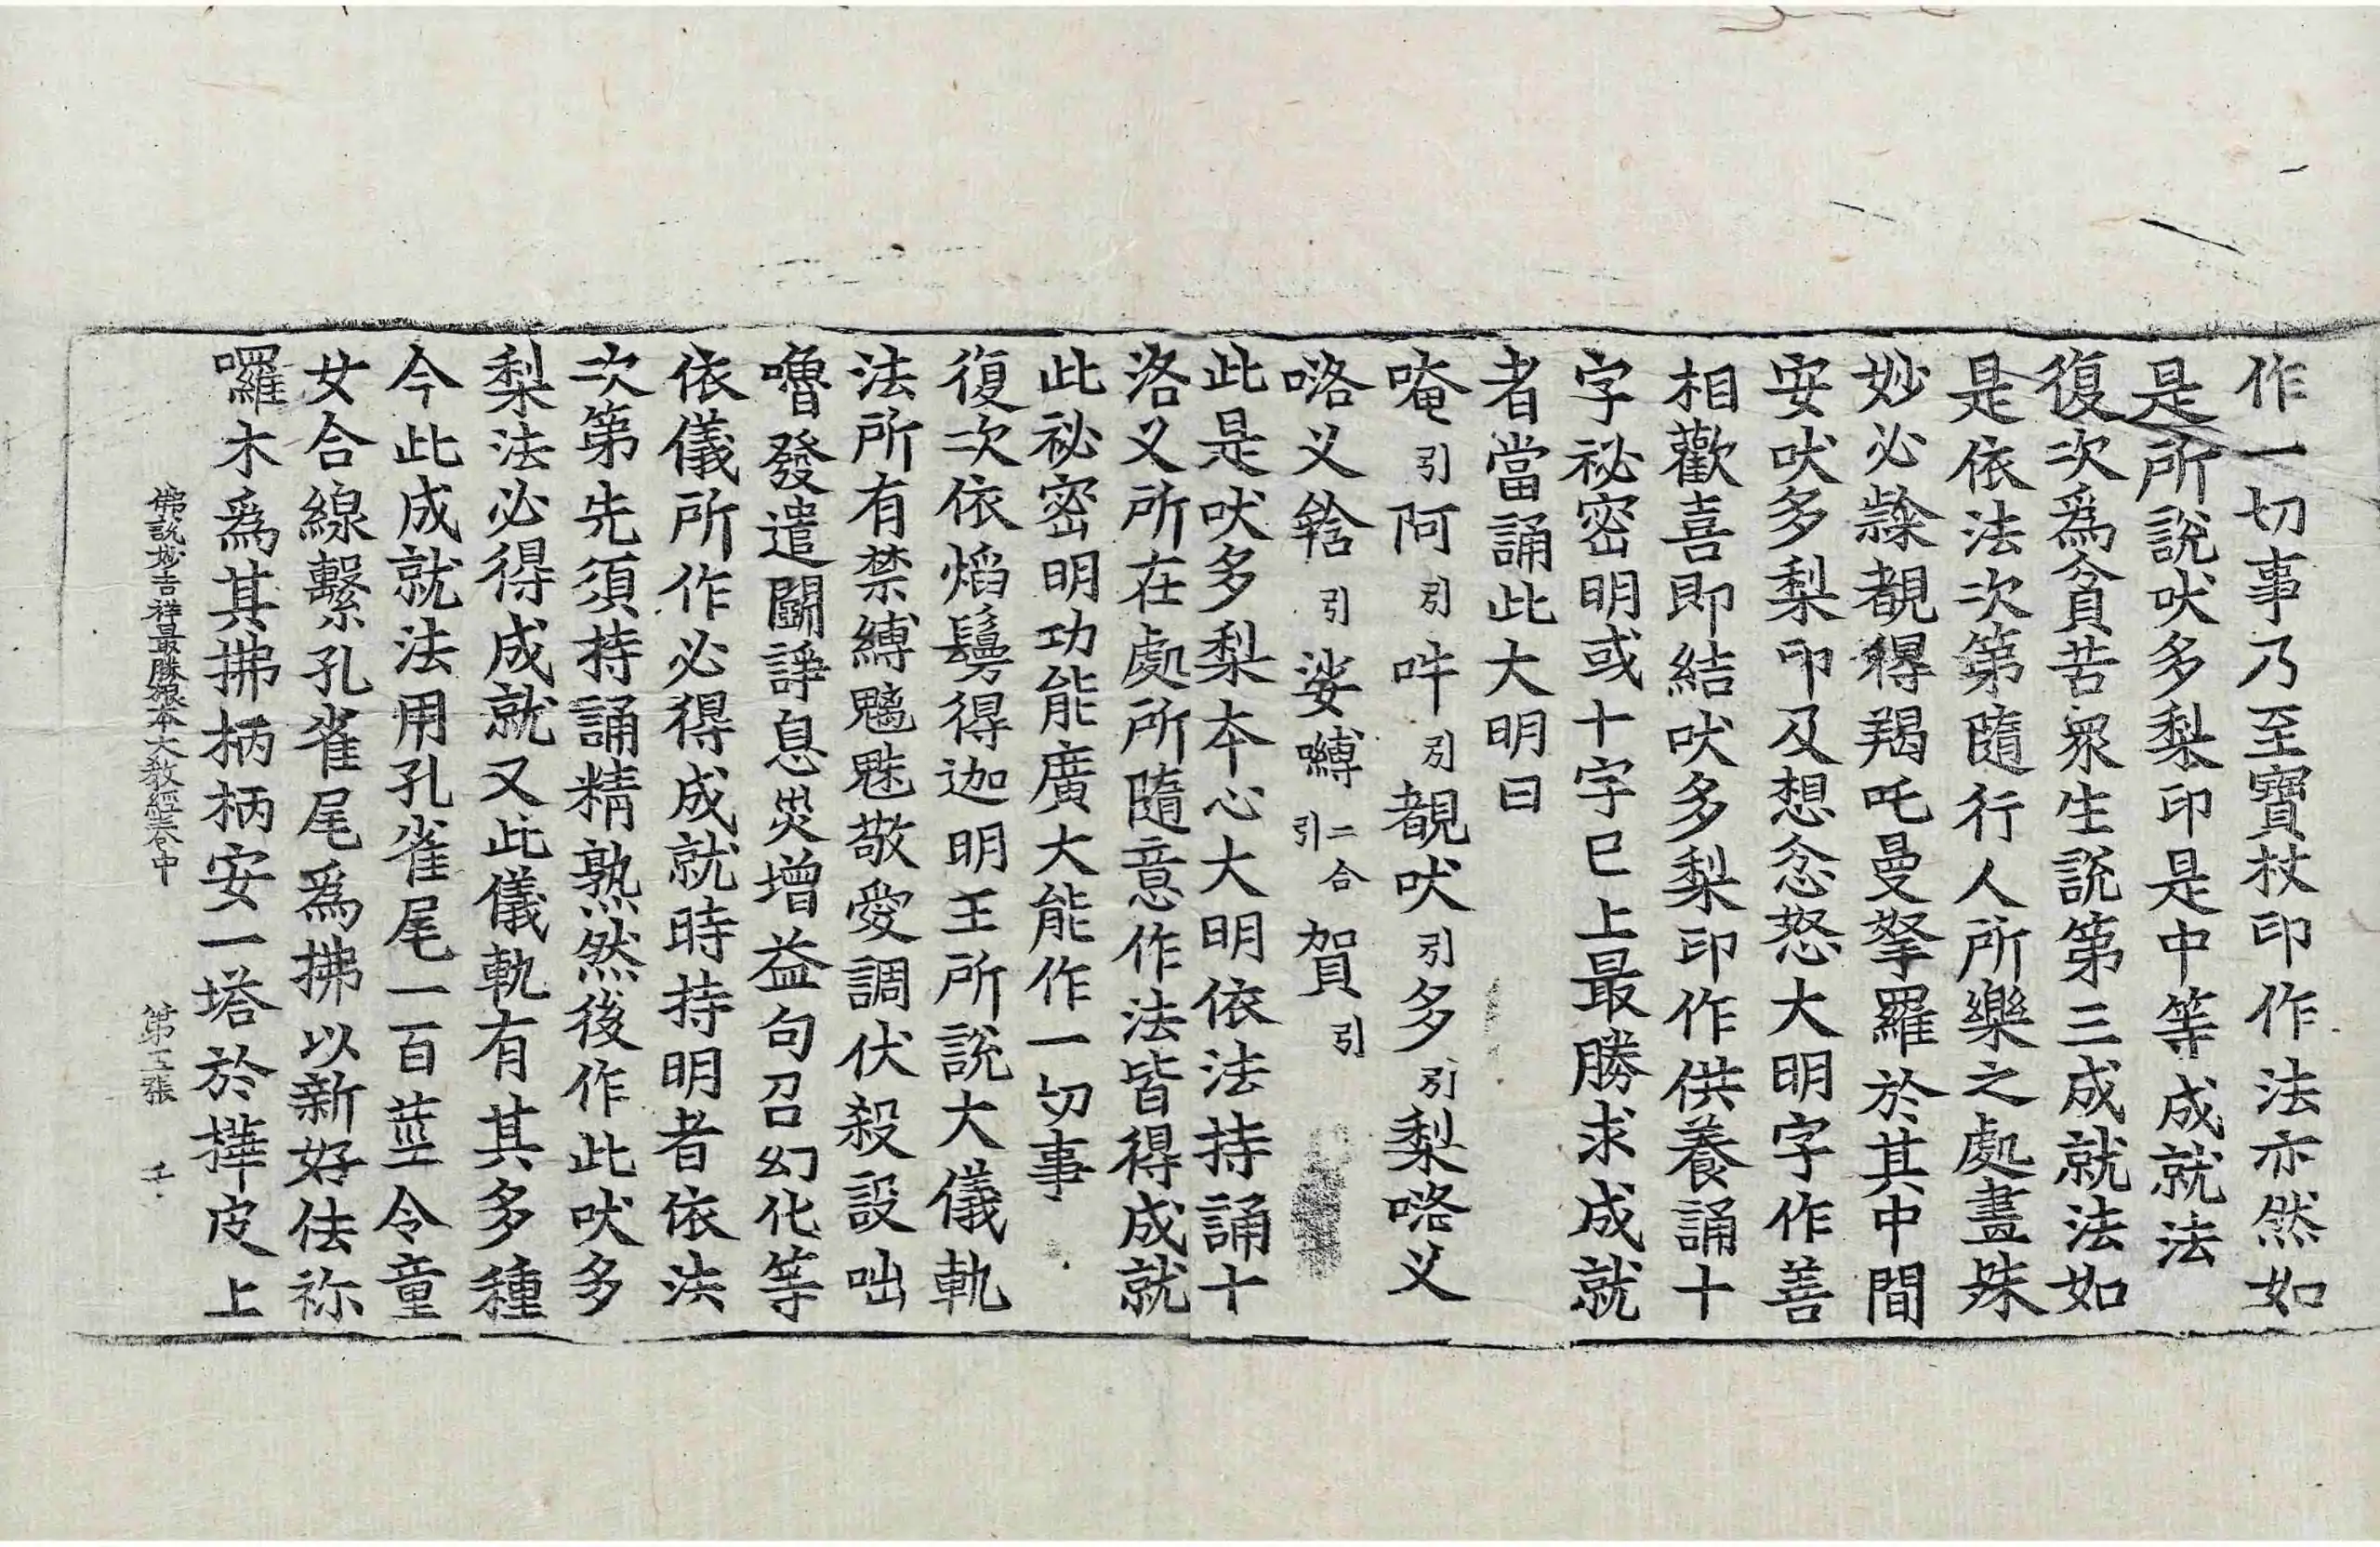 作一切事乃至寶杖印作法亦然如
是所說吠多梨印是中等成就法
復次爲貧苦衆生說第三成就法如
是依法次第隨行人所樂之處畫殊
妙必隸覩得羯吒曼拏羅於其中間
安吠多梨印及想忿怒大明字作善
相歡喜即結吠多梨印作供養誦十
字祕密明或十字巳上最勝求成就
者當誦此大明曰
唵引阿引吽引覩吠引多引梨咯叉
咯叉簭引娑嚩二合引賀引
此是吠多梨本心大明依法持誦十
洛叉所在處所隨意作法皆得成就
此祕密明功能廣大能作一切事
復次依焰鬘得迦明王所說大儀軌
法所有禁縛魑魅敬愛調伏殺設咄
嚕發遣鬬諍息災增益句召幻化等
依儀所作必得成就時持明者依法
次第先須持誦精熟然後作此吠多
梨法必得成就又此儀軌有其多種
今此成就法用孔雀尾一百莖令童
女合線繫孔雀尾爲拂以新好佉祢
囉木爲其拂柄柄安一塔於樺皮上
佛說妙吉祥最勝根本大教經卷中 第五張 壬